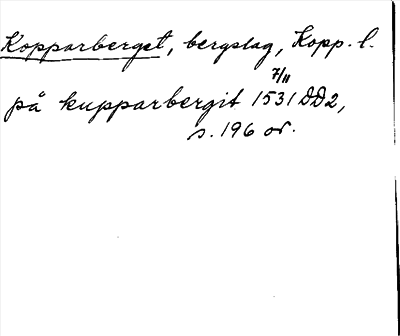 Kopparberget, bergslag, Kopp. l.
7/11
på kupparbergit 1531 DD2,
s. 196 or.